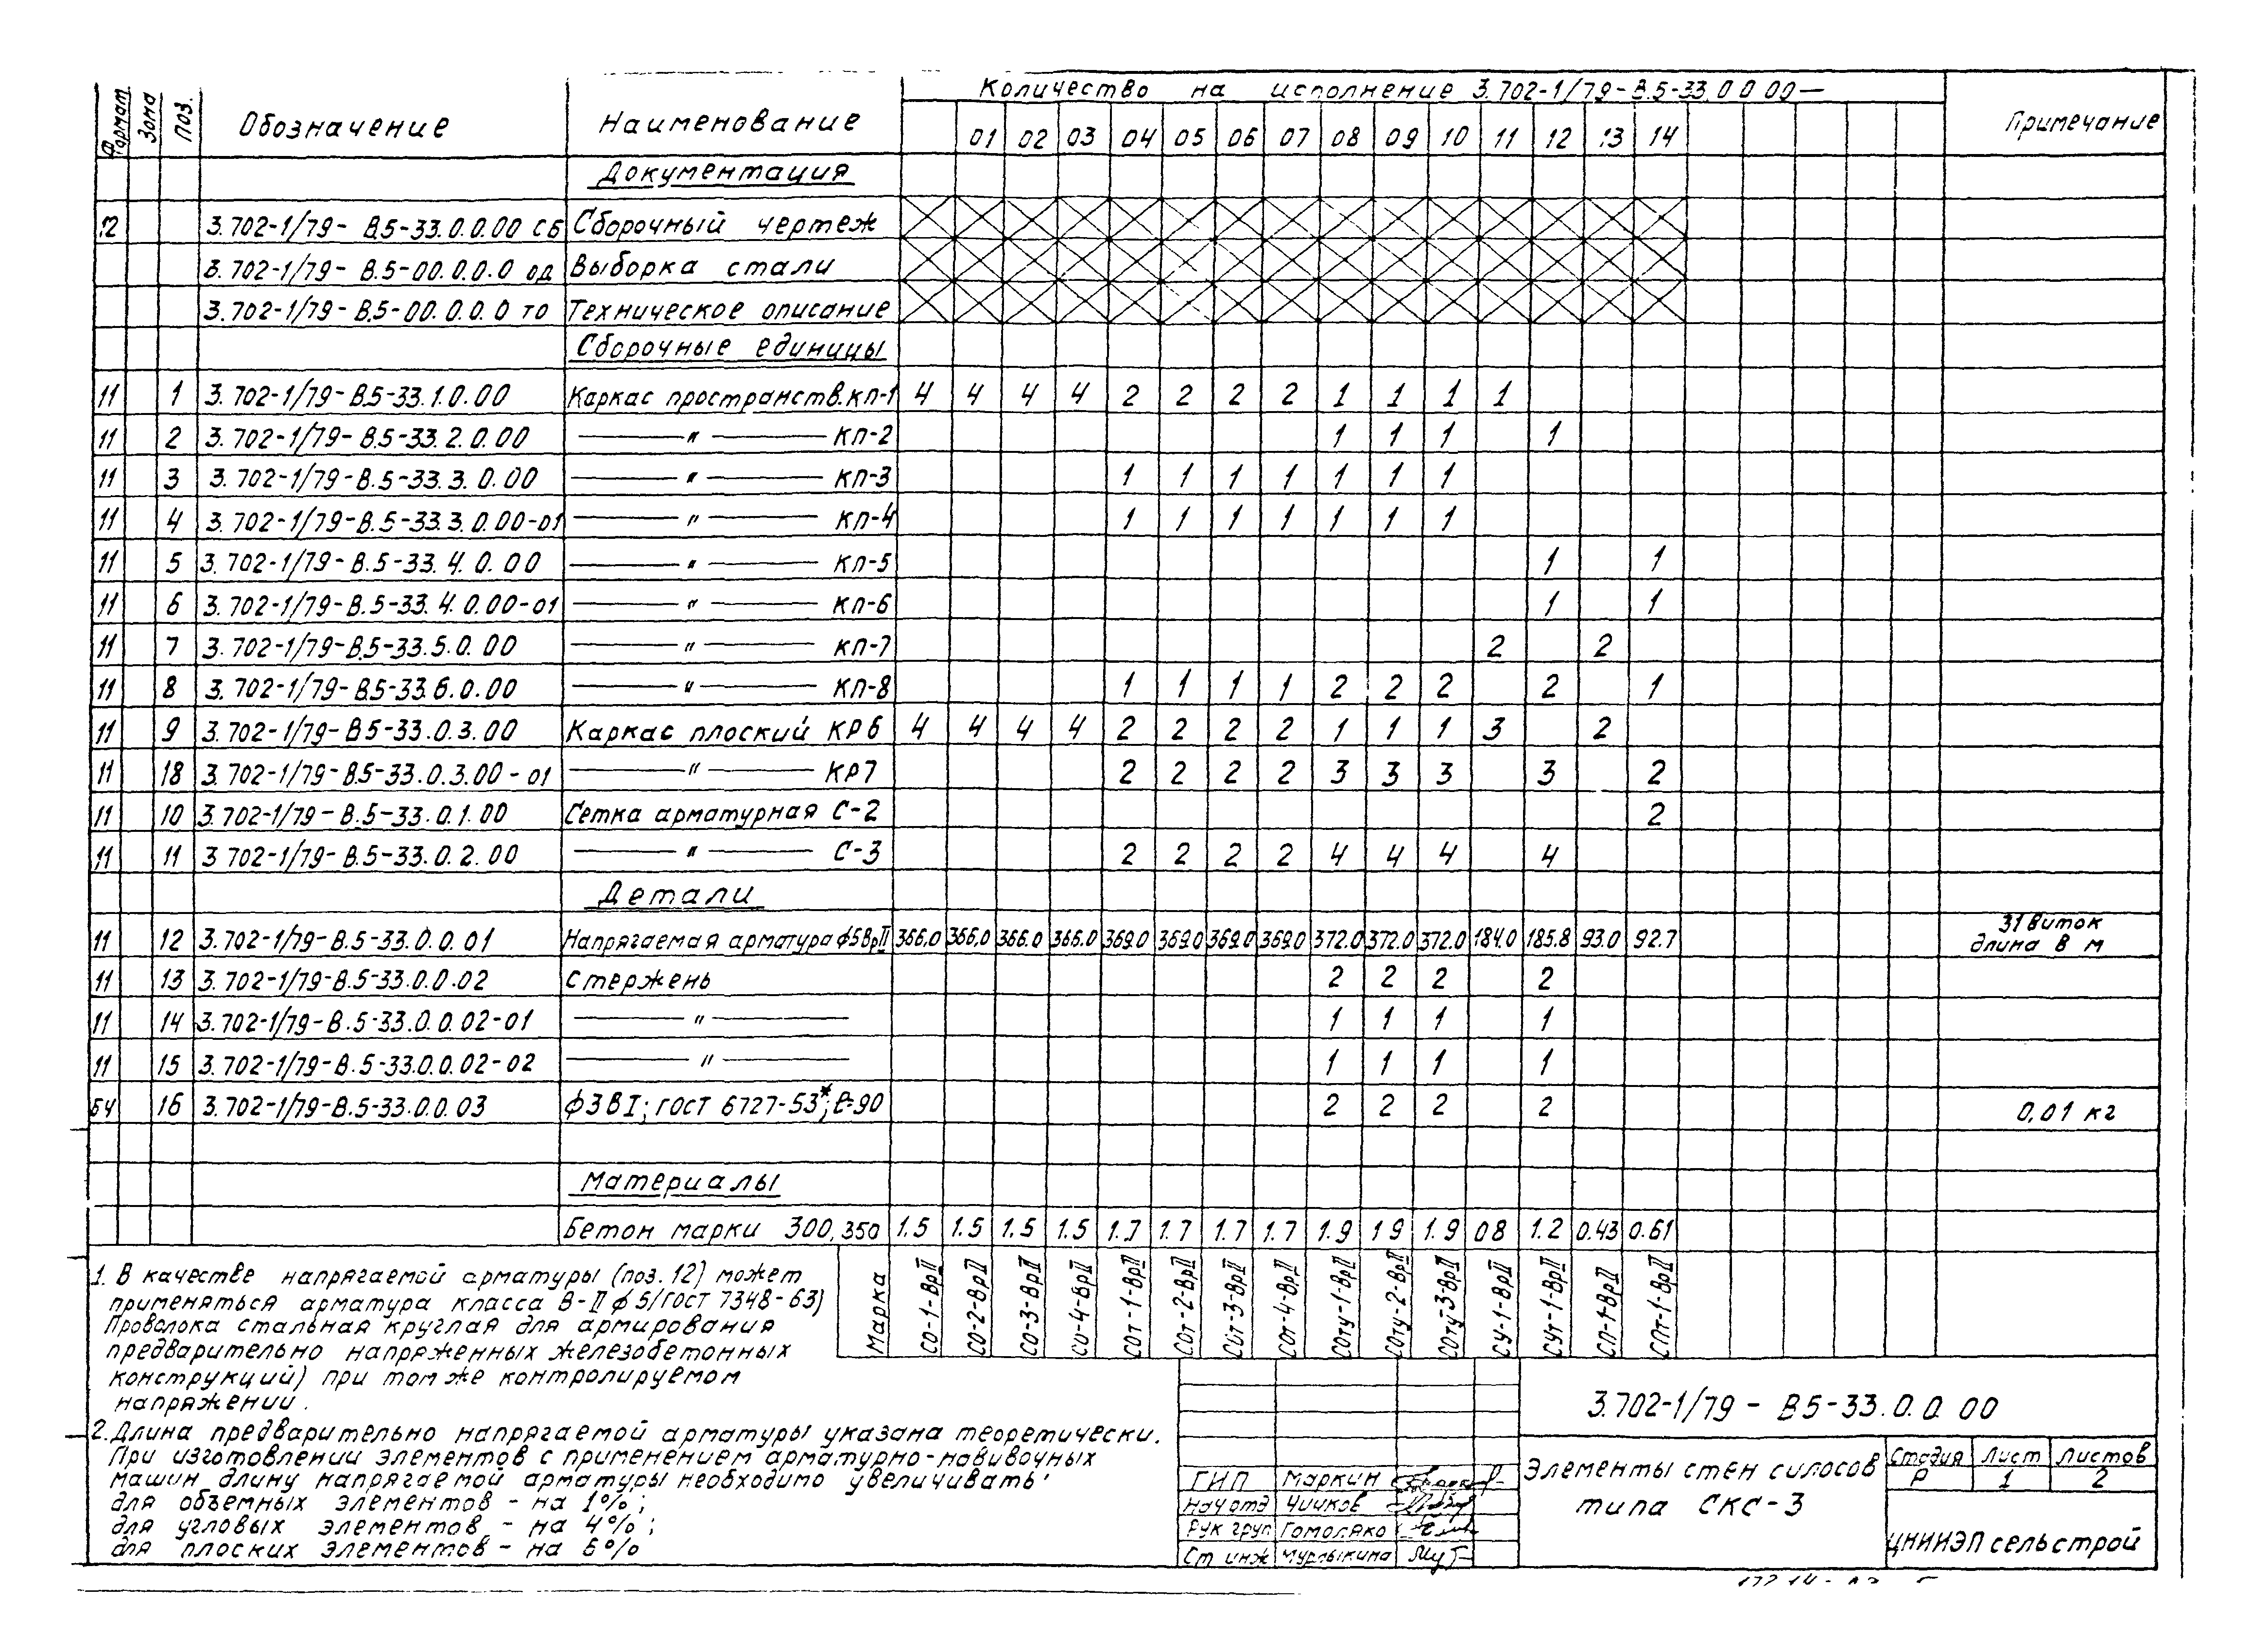 Количество на исполнение 3.702-1/79-В.5-33.0.0.00—
Формат Зона Поз. Обозначение Наименование 01 02 03 04 05 06 07 08 09 10 11 12 13 14 Примечание
Документация
12 3.702-1/79- В.5-33.0.0.00 СБ Сборочный чертеж
3.702-1/79- В.5-00.0.0.0 од Выборка стали
3.702-1/79- В.5-00.0.0.0 то Техническое описание
Сборочные единицы
11 1 3.702-1/79-В.5-33.1.0.00 Каркас пространств.КП-1 4 4 4 4 2 2 2 2 1 1 1 1
11 2 3.702-1/79-В.5-33.2.0.00 —— " —— КП-2 1 1 1 1
11 3 3.702-1/79-В.5-33.3.0.00 —— " —— КП-3 1 1 1 1 1 1 1
11 4 3.702-1/79-В.5-33.3.0.00-01 —— " —— КП-4 1 1 1 1 1 1 1
11 5 3.702-1/79-В.5-33.4.0.00 —— " —— КП-5 1 1
11 6 3.702-1/79-В.5-33.4.0.00-01 —— " —— КП-6 1 1
11 7 3.702-1/79-В.5-33.5.0.00 —— " —— КП-7 2 2
11 8 3.702-1/79-В.5-33.6.0.00 —— " —— КП-8 1 1 1 1 2 2 2 2 1
11 9 3.702-1/79-В5-33.0.3.00 Каркас плоский КР6 4 4 4 4 2 2 2 2 1 1 1 3 2
11 18 3.702-1/79-В.5-33.0.3.00-01 —— " —— КР7 2 2 2 2 3 3 3 3 2
11 10 3.702-1/79-В.5-33.0.1.00 Сетка арматурная С-2 2
11 11 3.702-1/79-В.5-33.0.2.00 —— " —— С-3 2 2 2 2 4 4 4 4
Детали
11 12 3.702-1/79-В.5-33.0.0.01 Напрягаемая арматура ϕ5ВрII 366.0 366.0 366.0 366.0 369.0 369.0 369.0 369.0 372.0 372.0 372.0 184.0 185.8 93.0 92.7 31 виток длина в м
11 13 3.702-1/79-В.5-33.0.0.02 Стержень 2 2 2 2
11 14 3.702-1/79-В.5-33.0.0.02-01 —— " —— 1 1 1 1
11 15 3.702-1/79-В.5-33.0.0.02-02 —— " —— 1 1 1 1
БЧ 16 3.702-1/79-В.5-33.0.0.03 ϕ3ВI; ГОСТ 6727-53*; ℓ=90 2 2 2 2 0,01 кг
Материалы
Бетон марки 300, 350 1.5 1.5 1.5 1.5 1.7 1.7 1.7 1.7 1.9 1 9 1.9 0 8 1.2 0.43 0.61
Марка СО-1-ВрII СО-2-ВрII СО-3-ВрII СО-4-ВрII СОт-1-ВрII СОт-2-ВрII СОт-3-ВрII СОт-4-ВрII СОту-1-ВрII СОту-2-ВрII СОту-3-ВрII СУ-1-ВрII СУт-1-ВрII СП-1-ВрII СПт-1-ВрII
1. В качестве напрягаемой арматуры (поз. 12) может
применяться арматура класса В-II ϕ5/ГОСТ 7348-63)
Проволока стальная круглая для армирования
предварительно напряженных железобетонных
конструкций) при том же контролируемом
напряжении.
2. Длина предварительно напрягаемой арматуры указана теоретически.
При изготовлении элементов с применением арматурно-навивочных
машин длину напрягаемой арматуры необходимо увеличивать:
для объемных элементов - на 1%;
для угловых элементов - на 4%;
для плоских элементов - на 6%
3.702-1/79 - В5-33.0.0.00
Элементы стен силосов
типа СКС-3
Стадия Лист Листов
Р 1 2
ЦНИИЭПсельстрой
ГИП Маркин
Нач отд Чичков
Рук груп Гомоляко
Ст инж Мурлыкина